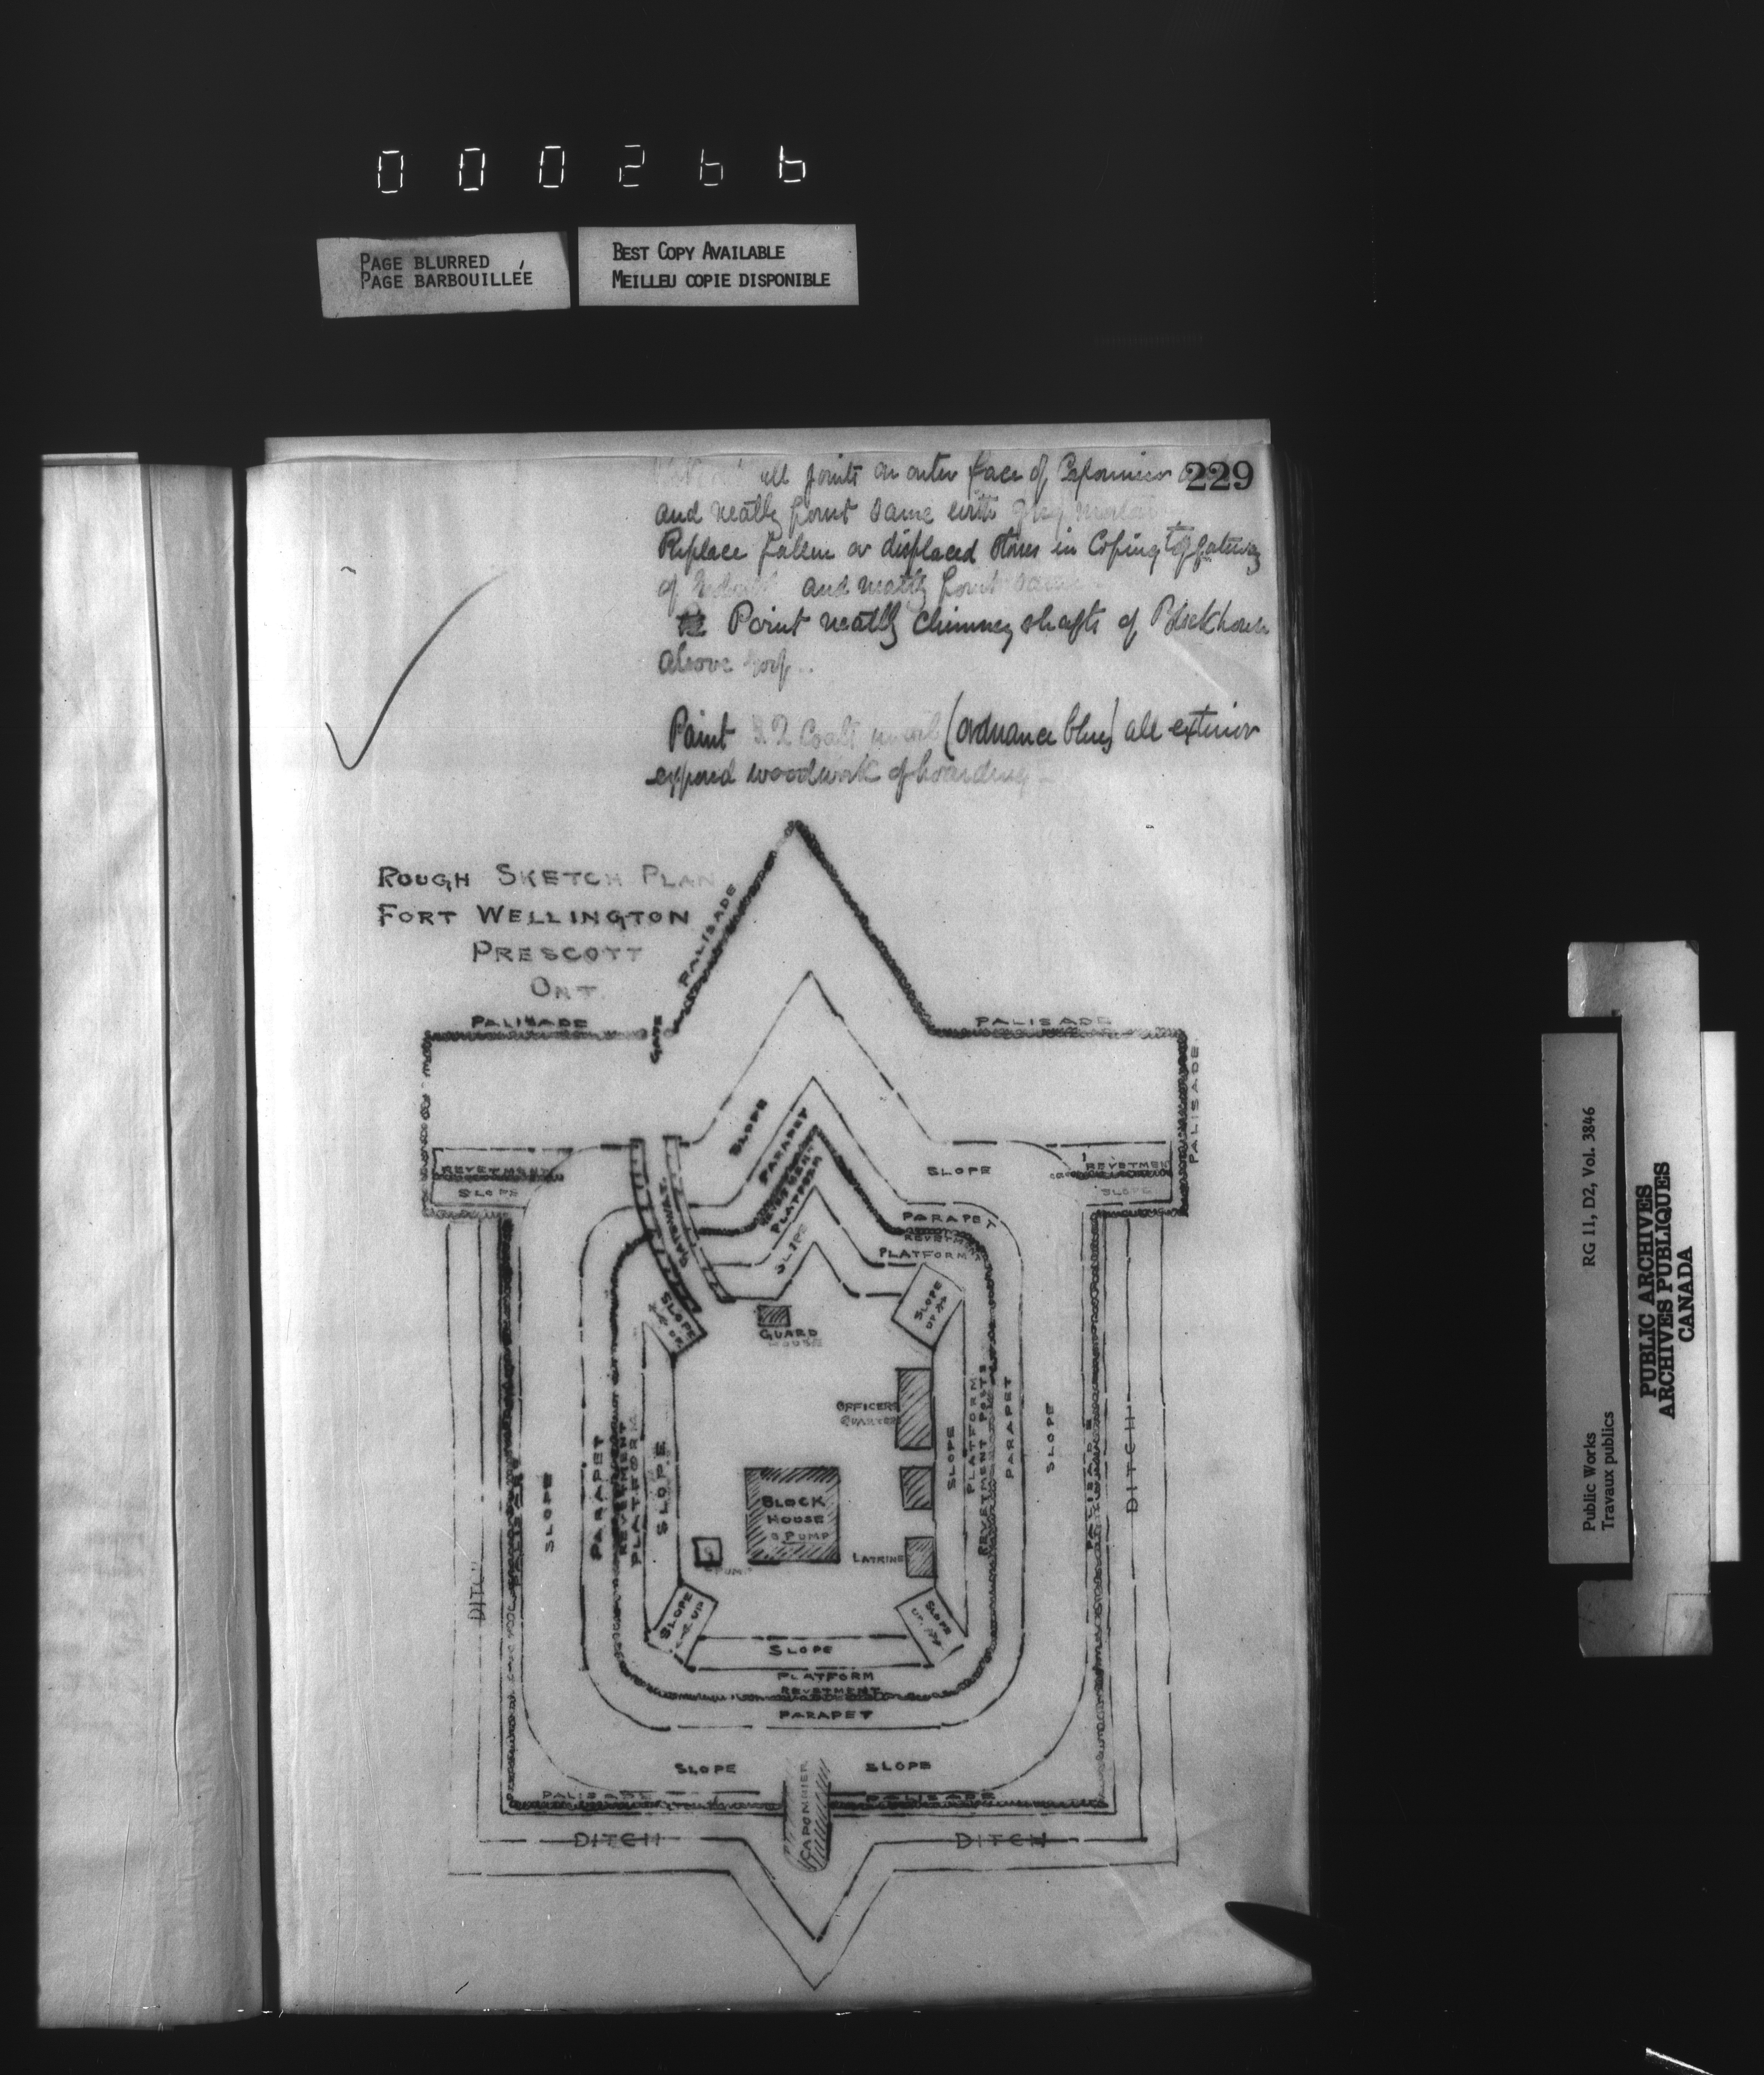 000266
PAGE BLURRED
PAGE BARBOUILLÉE
BEST COPY AVAILABLE
MEILLEU COPIE DISPONIBLE
229
all joints on outer face of Caponnier
and neatly point same with grey mortar
Replace fallen or displaced stones in Coping of gateway
of and neatly point same
Point neatly chimney shafts of Blockhouse
above roof
Paint 2 Coats in oil (ordnance blue) all exterior
exposed woodwork of boarding
ROUGH SKETCH PLAN
FORT WELLINGTON
PRESCOTT
ONT.
PALISADE
PALISADE
GATE
PALISADE
PALISADE
REVETMENT
SLOPE
SLOPE
PARAPET
REVETMENT
PLATFORM
SLOPE
GATEWAY
SLOPE
REVETMEN
SLOPE
PARAPET
REVETMENT
PLATFORM
SLOPE UP
SLOPE UP
GUARD
HOUSE
OFFICERS
QUARTERS
BLOCK
HOUSE
PUMP
PUMP
LATRINE
DITCH
PALISADE
SLOPE
PARAPET
REVETMENT
PLATFORM
SLOPE
SLOPE
PLATFORM
REVETMENT POSTS
PARAPET
SLOPE
PALISADE
DITCH
SLOPE UP
SLOPE UP
SLOPE
PLATFORM
REVETMENT
PARAPET
SLOPE
SLOPE
PALISADE
PALISADE
CAPONNIER
DITCH
DITCH
Public Works
Travaux publics
RG 11, D2, Vol. 3846
PUBLIC ARCHIVES
ARCHIVES PUBLIQUES
CANADA